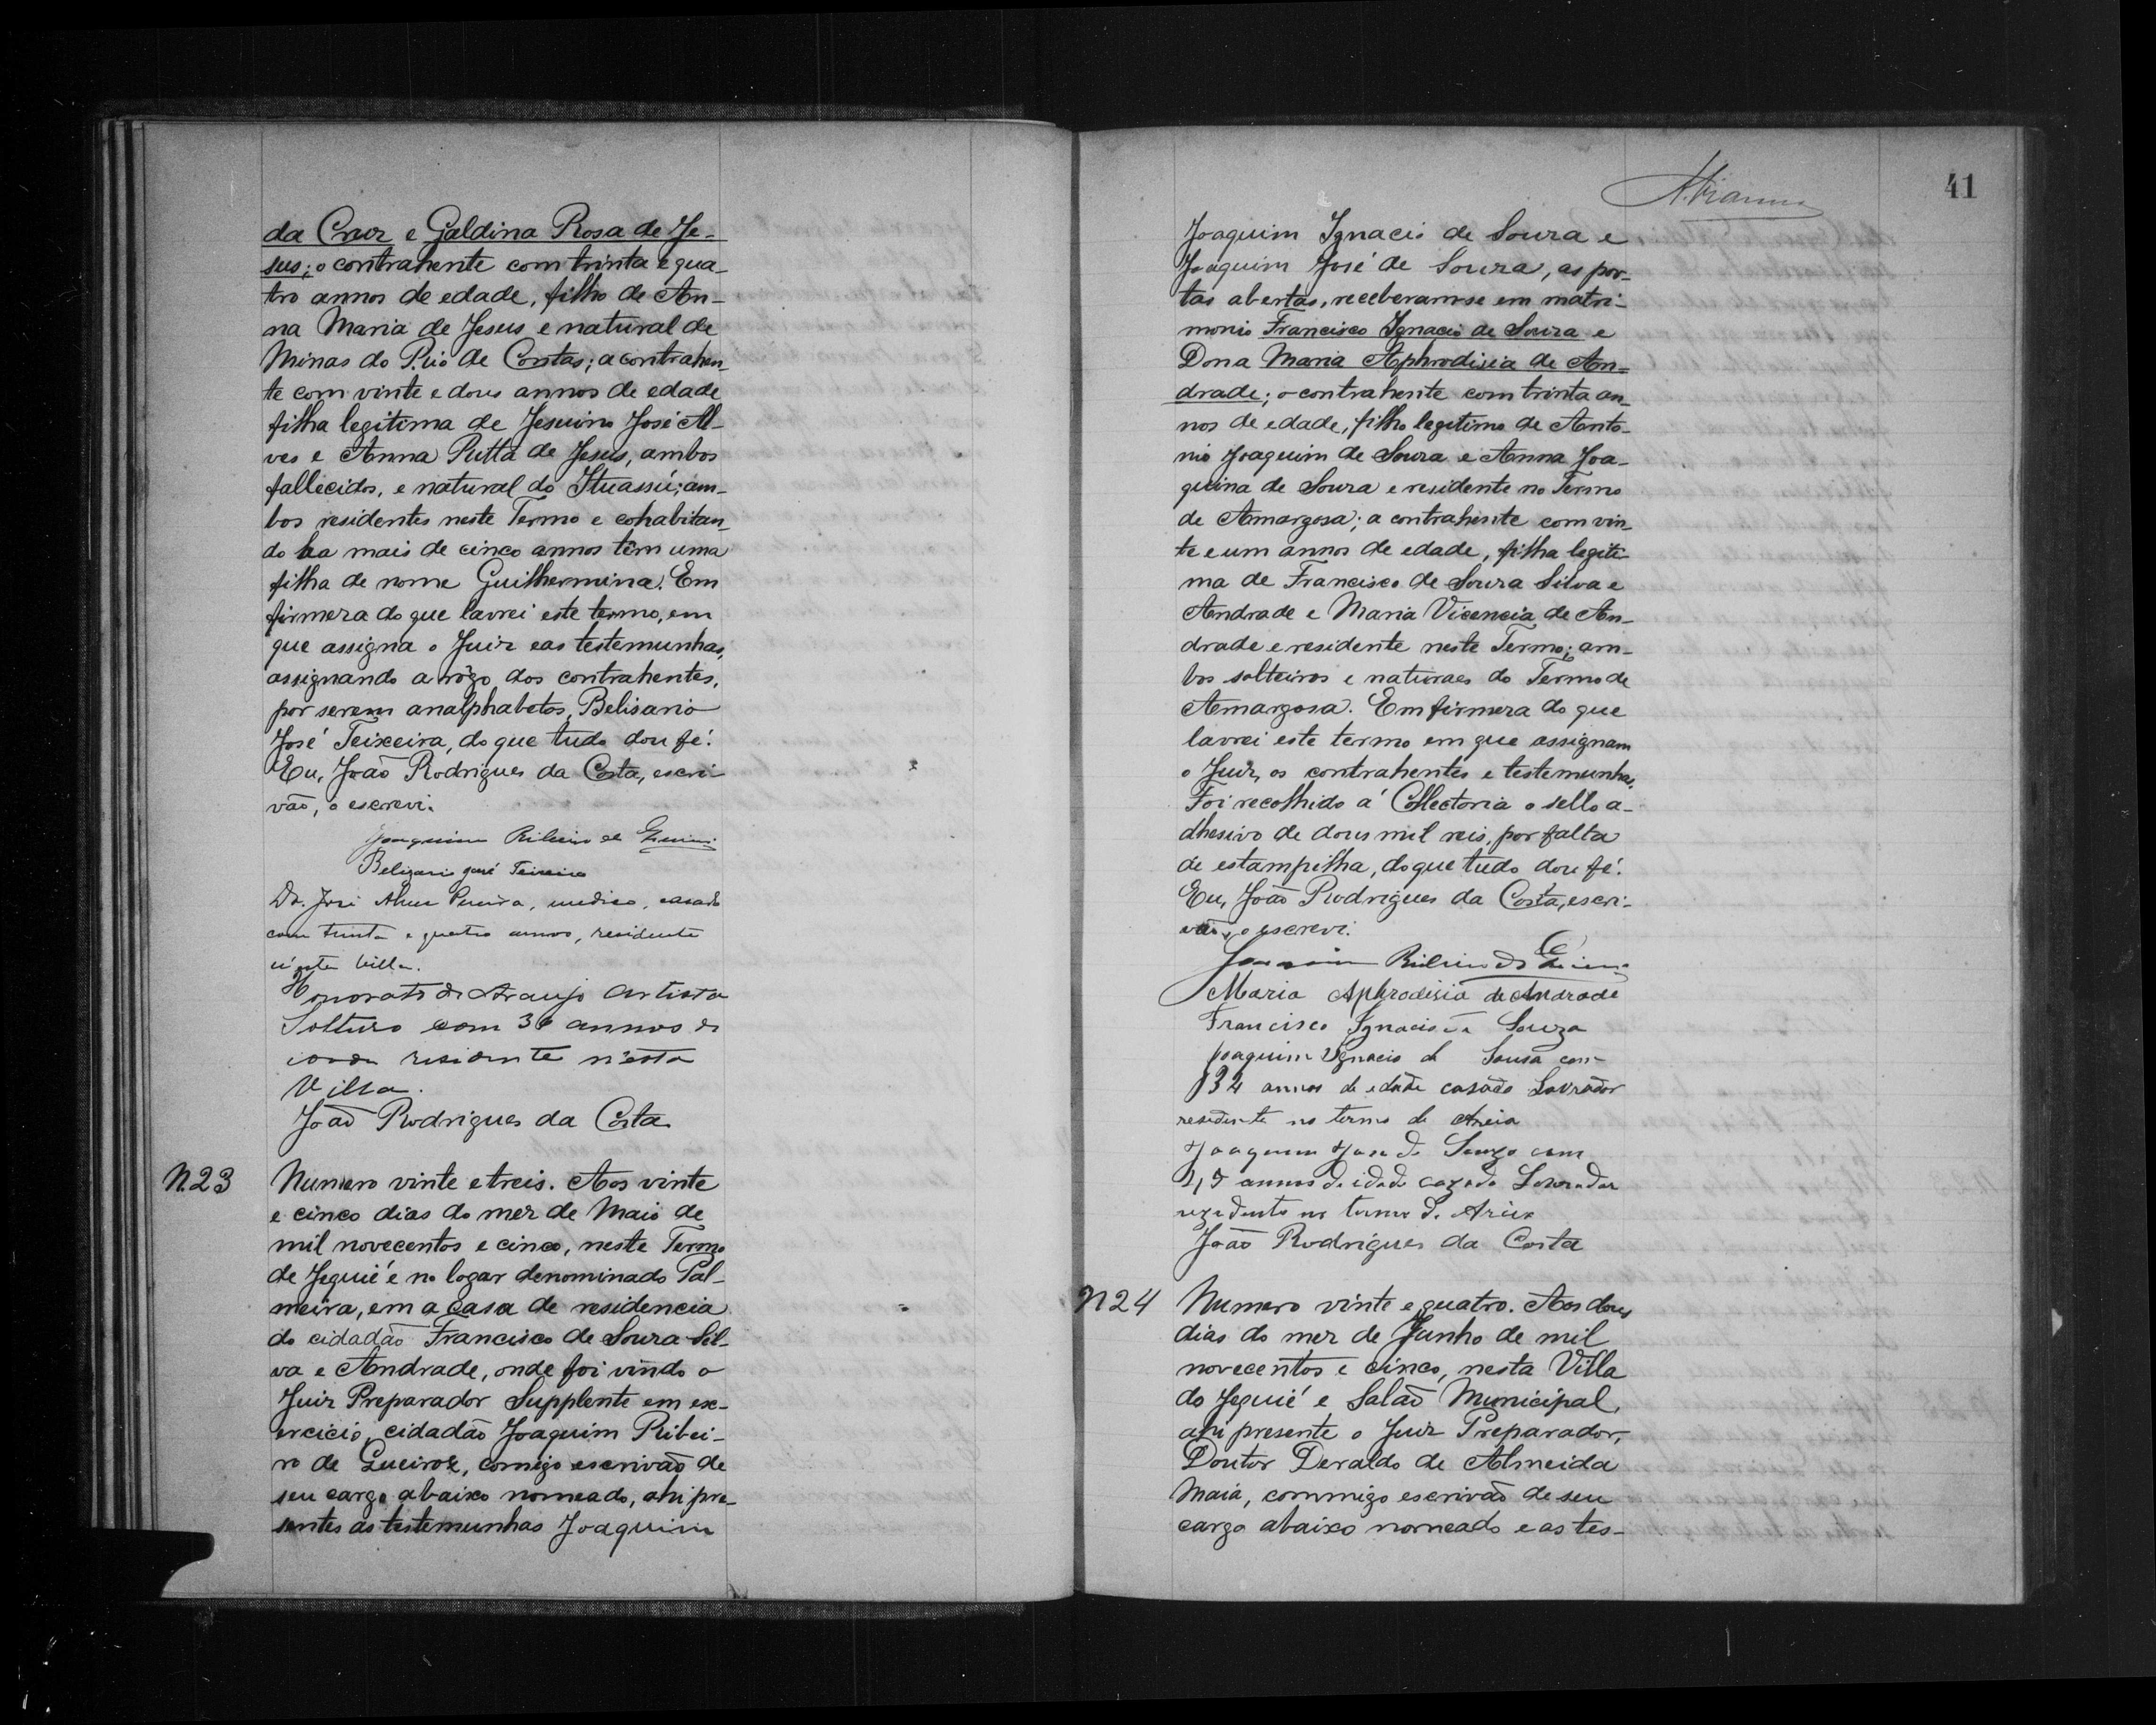 da Cruz e Galdina Rosa de Je-
sus; o contrahente com trinta e qua-
tro annos de edade, filho de An-
na Maria de Jesus e natural de
Minas do Rio de Contas; a contrahen-
te com vinte e dous annos de edade
filha legitima de Jesuino José Al-
ves e Anna Ritta de Jesus, ambos
fallecidos, e natural do Ituassú; am-
bos residentes neste Termo e cohabitan-
do ha mais de cinco annos têm uma
filha de nome Guilhermina. Em
firmeza do que lavrei este termo, em
que assigna o Juiz e as testemunhas,
assignando a rôgo dos contrahentes,
por serem analphabetos, Belisario
José Teixeira, do que tudo dou fé.
Eu, João Rodrigues da Costa, escri-
vão, o escrevi.
Joaquim Ribeiro de
Belizario José Teixeira
Dr. José Alves Pereira, medico, casado
com trinta e quatro annos, residente
n'esta Villa.
Honorato de Araujo Artista
Solteiro com 30 annos de
idade residente n'esta
Villa.
João Rodrigues da Costa
N.23
Numero vinte e treis. Aos vinte
e cinco dias do mez de Maio de
mil novecentos e cinco, neste Termo
de Jequié e no logar denominado Pal-
meira, em a casa de residencia
do cidadão Francisco de Souza Sil-
va e Andrade, onde foi vindo o
Juiz Preparador Supplente em ex-
ercicio, cidadão Joaquim Ribei-
ro de Queiroz, comigo escrivão de
seu cargo abaixo nomeado, ahi pre-
sentes as testemunhas Joaquim
41
Joaquim Ignacio de Souza e
Joaquim José de Souza, as por-
tas abertas, receberam-se em matri-
monio Francisco Ignacio de Souza e
Dona Maria Aphrodisia de An-
drade; o contrahente com trinta an-
nos de edade, filho legitimo de Anto-
nio Joaquim de Souza e Anna Joa-
quina de Souza e residente no Termo
de Amargosa; a contrahente com vin-
te e um annos de edade, filha legiti-
ma de Francisco de Souza Silva e
Andrade e Maria Vicencia de An-
drade e residente neste Termo; am-
bos solteiros e naturaes do Termo de
Amargosa. Em firmeza do que
lavrei este termo em que assignam
o Juiz, os contrahentes e testemunhas.
Foi recolhido á Collectoria o sello a-
dhesivo de dous mil reis, por falta
de estampilha, do que tudo dou fé.
Eu, João Rodrigues da Costa, escri-
vão, o escrevi.
Joaquim Ribeiro de
Maria Aphrodisia de Andrade
Francisco Ignacio de Souza
Joaquim Ignacio de Sousa com
34 annos de edade casado Lavrador
residente no termo de Areia
Joaquim Jose de Souza com
annos de idade cazado Lavrador
rezidente no termo de Areia
João Rodrigues da Costa
N 24
Numero vinte e quatro. Aos dous
dias do mez de Junho de mil
novecentos e cinco, nesta Villa
do Jequié e Salão Municipal,
ahi presente o Juiz Preparador,
Doutor Deraldo de Almeida
Maia, commigo escrivão de seu
cargo abaixo nomeado e as tes-